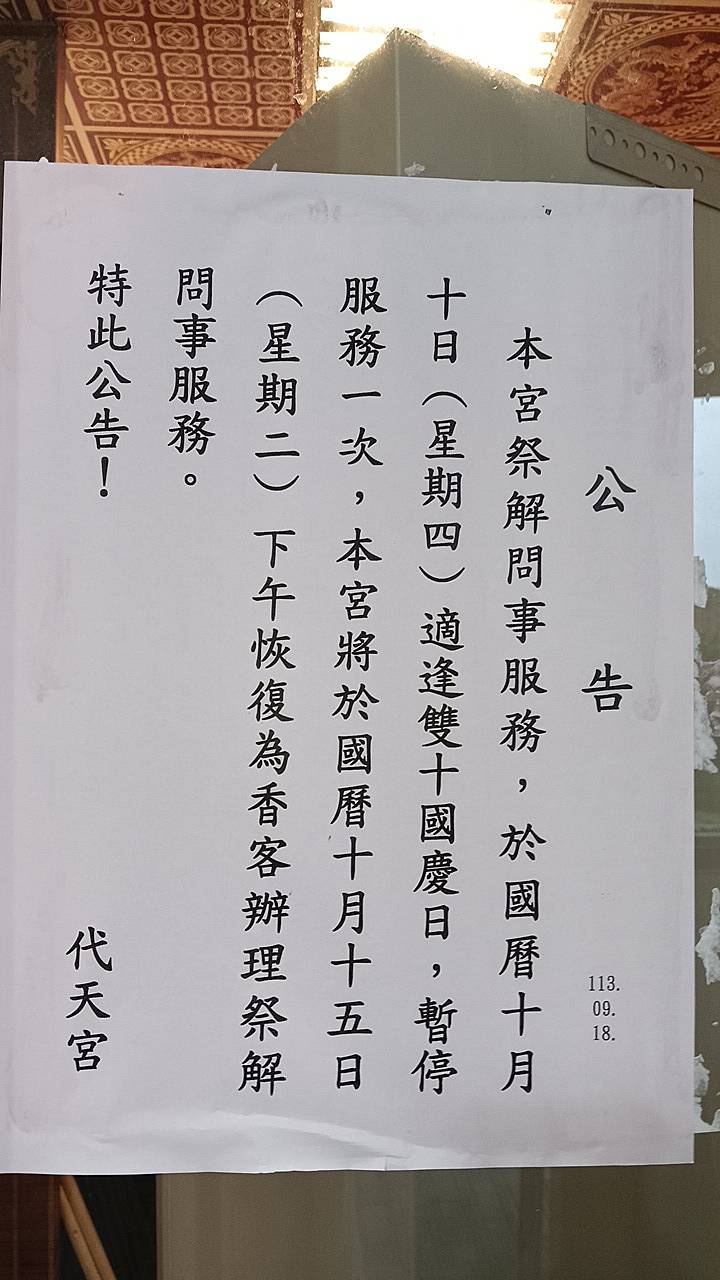 公告
113.
09.
18.
本宮祭解問事服務，於國曆十月
十日（星期四）適逢雙十國慶日，暫停
服務一次，本宮將於國曆十月十五日
（星期二）下午恢復為香客辦理祭解
問事服務。
特此公告！
代天宮